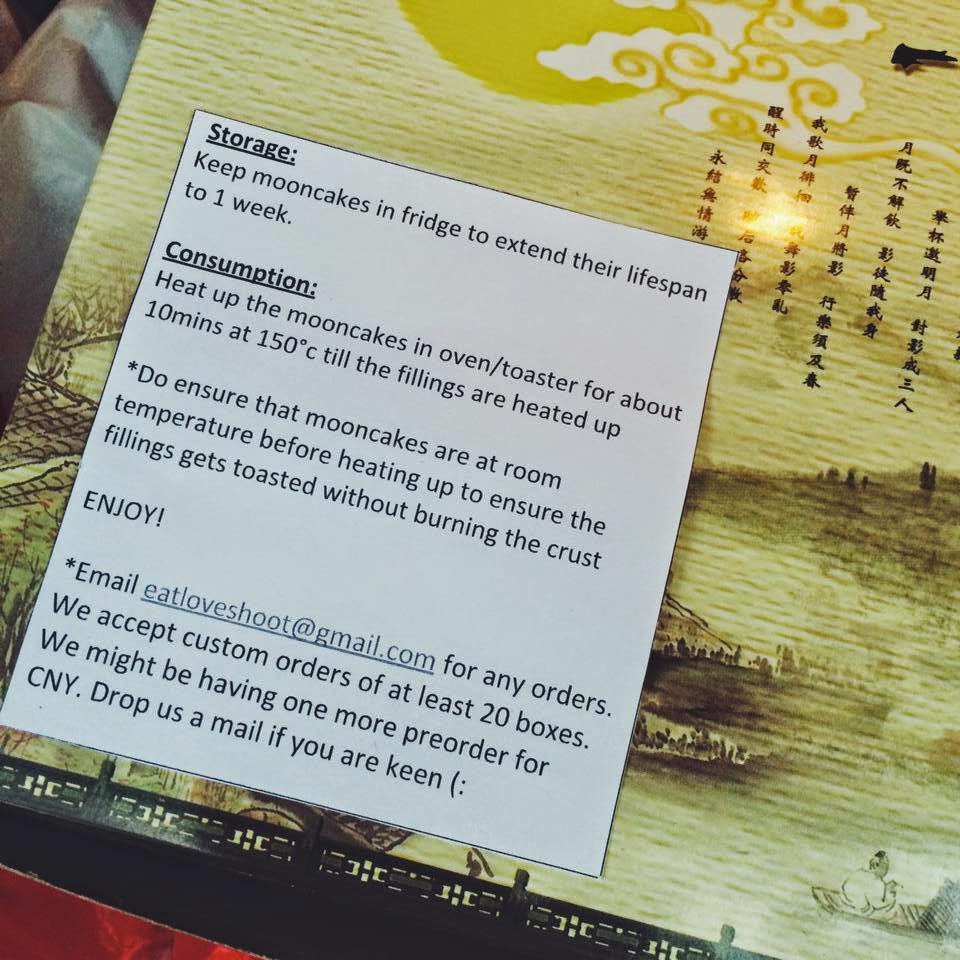 Storage:
Keep mooncakes in fridge to extend their lifespan
to 1 week.
Consumption:
Heat up the mooncakes in oven/toaster for about
10mins at 150°c till the fillings are heated up
*Do ensure that mooncakes are at room
temperature before heating up to ensure the
fillings gets toasted without burning the crust
ENJOY!
*Email eatloveshoot@gmail.com for any orders.
We accept custom orders of at least 20 boxes.
We might be having one more preorder for
CNY. Drop us a mail if you are keen (:
舉杯邀明月 對影成三人
月既不解飲 影徒隨我身
暫伴月將影 行樂須及春
我歌月徘徊 我舞影零亂
醒時同交歡 醉后各分散
永結無情游